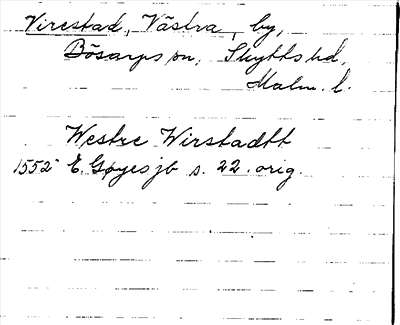 Virestad, Västra, by,
Bösarps sn, Skytts hd,
Malm. l.
Westre Wirstadtt
1552 E. Gøyes jb s. 22. orig.